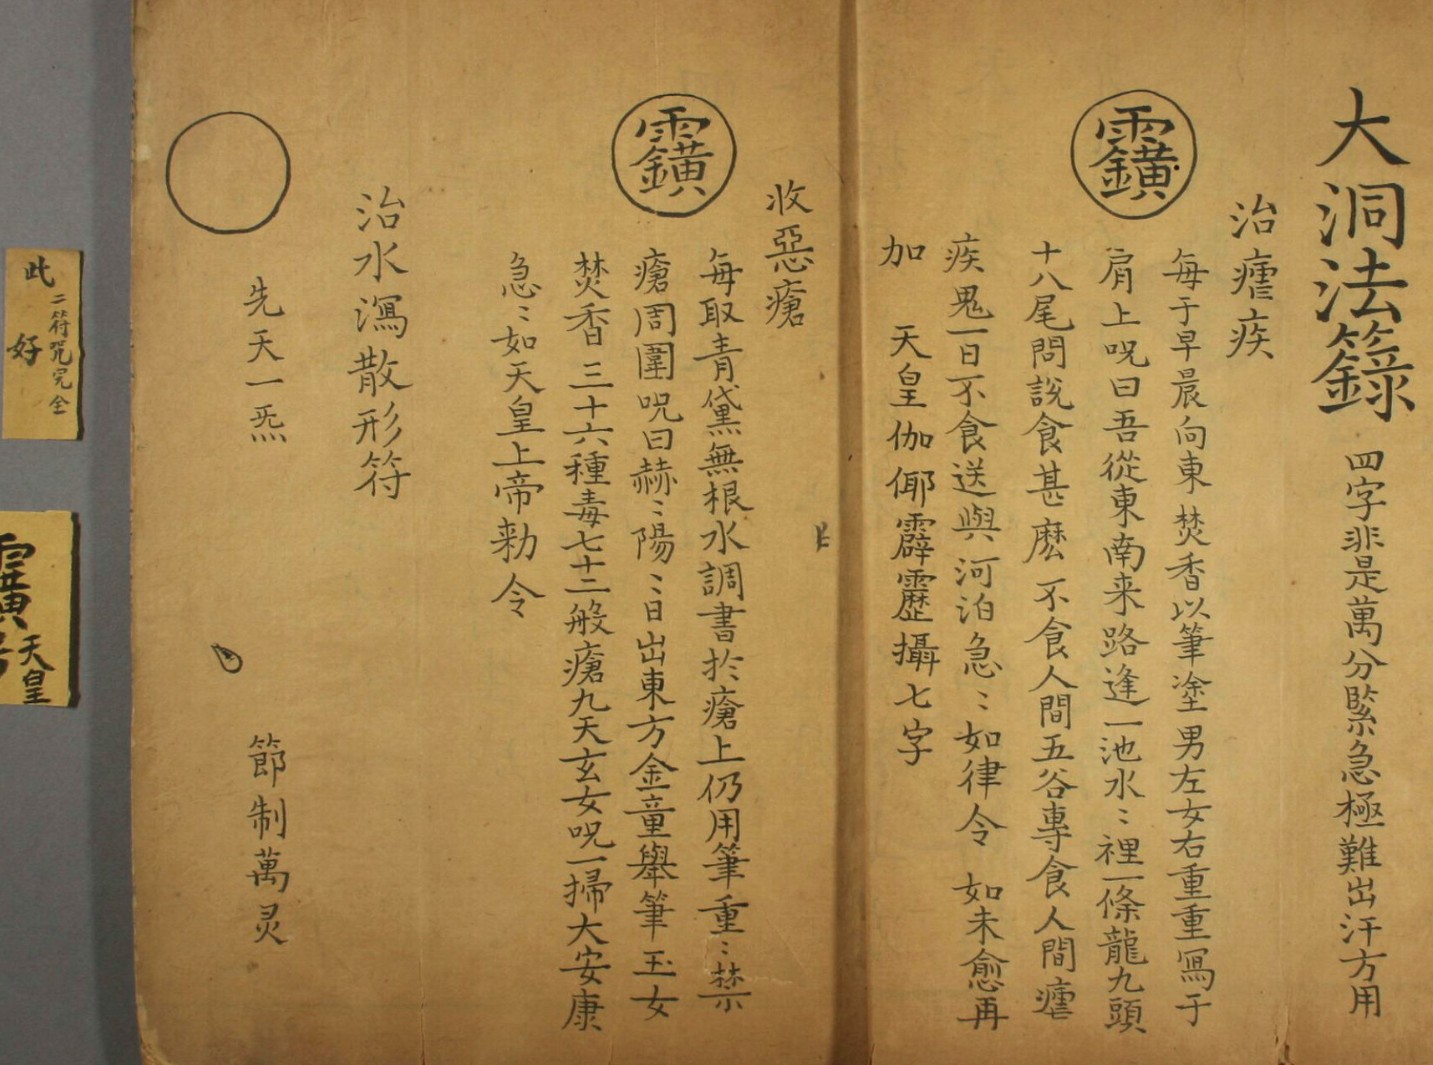 大洞法籙 四字非是萬分緊急極難出汗方用
治瘧疾
每于早晨向東焚香以筆塗男左女右重重寫于
肩上呪曰吾從東南来路逢一池水〻裡一條龍九頭
十八尾問說食甚麽不食人間五谷專食人間瘧
疾鬼一日不食送與河泊急〻如律令 如未愈再
加 天皇伽倻霹靂攝七字
收惡瘡
每取青黛無根水調書於瘡上仍用筆重〻禁
瘡周圍呪曰赫〻陽〻日出東方金童舉筆玉女
焚香三十六種毒七十二般瘡九天玄女呪一掃大安康
急〻如天皇上帝勅令
治水瀉散形符
先天一炁 節制萬灵
此二符咒完全
好
天皇